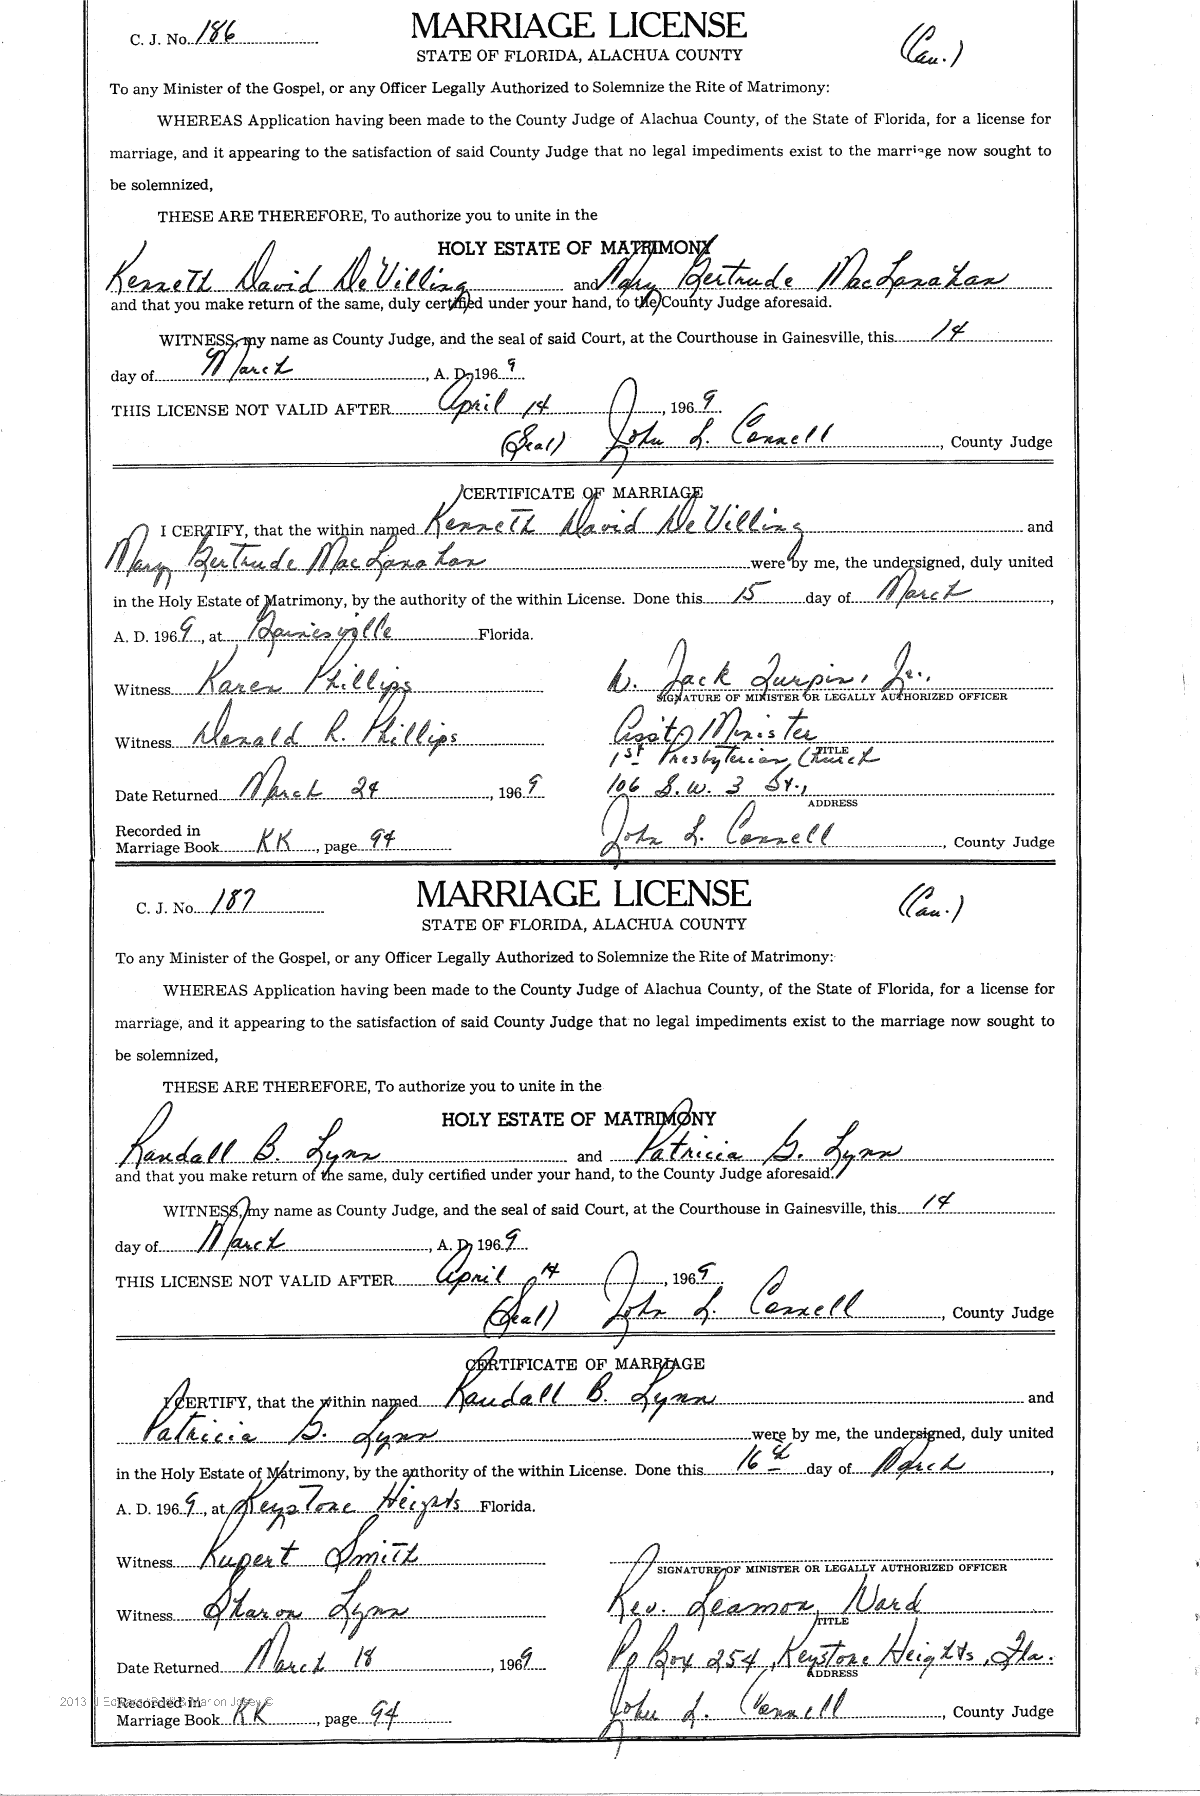 C. J. No. 186
MARRIAGE LICENSE
(Cau.)
STATE OF FLORIDA, ALACHUA COUNTY
To any Minister of the Gospel, or any Officer Legally Authorized to Solemnize the Rite of Matrimony:
WHEREAS Application having been made to the County Judge of Alachua County, of the State of Florida, for a license for
marriage, and it appearing to the satisfaction of said County Judge that no legal impediments exist to the marriage now sought to
be solemnized,
THESE ARE THEREFORE, To authorize you to unite in the
HOLY ESTATE OF MATRIMONY
Kenneth David DeVilling and Mary Gertrude MacLanahan
and that you make return of the same, duly certified under your hand, to the County Judge aforesaid.
WITNESS, my name as County Judge, and the seal of said Court, at the Courthouse in Gainesville, this 14
day of March, A. D. 1969
THIS LICENSE NOT VALID AFTER April 14, 1969
(Seal) John L. Connell, County Judge
CERTIFICATE OF MARRIAGE
I CERTIFY, that the within named Kenneth David DeVilling and
Mary Gertrude MacLanahan were by me, the undersigned, duly united
in the Holy Estate of Matrimony, by the authority of the within License. Done this 15 day of March,
A. D. 1969, at Gainesville Florida.
Witness Karen Phillips
W. Jack Turpin, Jr.,
SIGNATURE OF MINISTER OR LEGALLY AUTHORIZED OFFICER
Witness Donald R. Phillips
Ass't Minister
TITLE
1st Presbyterian Church
Date Returned March 24, 1969
106 S.W. 3 St.,
ADDRESS
Recorded in
Marriage Book KK, page 94
John L. Connell, County Judge
C. J. No. 187
MARRIAGE LICENSE
(Cau.)
STATE OF FLORIDA, ALACHUA COUNTY
To any Minister of the Gospel, or any Officer Legally Authorized to Solemnize the Rite of Matrimony:
WHEREAS Application having been made to the County Judge of Alachua County, of the State of Florida, for a license for
marriage, and it appearing to the satisfaction of said County Judge that no legal impediments exist to the marriage now sought to
be solemnized,
THESE ARE THEREFORE, To authorize you to unite in the
HOLY ESTATE OF MATRIMONY
Randall B. Lynn and Patricia G. Lynn
and that you make return of the same, duly certified under your hand, to the County Judge aforesaid.
WITNESS, my name as County Judge, and the seal of said Court, at the Courthouse in Gainesville, this 14
day of March, A. D. 1969
THIS LICENSE NOT VALID AFTER April 14, 1969
(Seal) John L. Connell, County Judge
CERTIFICATE OF MARRIAGE
I CERTIFY, that the within named Randall B. Lynn and
Patricia G. Lynn were by me, the undersigned, duly united
in the Holy Estate of Matrimony, by the authority of the within License. Done this 16th day of March,
A. D. 1969, at Keystone Heights Florida.
Witness Rupert Smith
SIGNATURE OF MINISTER OR LEGALLY AUTHORIZED OFFICER
Witness Sharon Lynn
Rev. Leamon Ward
TITLE
Date Returned March 18, 1969
Po Box 254, Keystone Heights, Fla.
ADDRESS
2013
Recorded in
Marriage Book KK, page 94
John L. Connell, County Judge